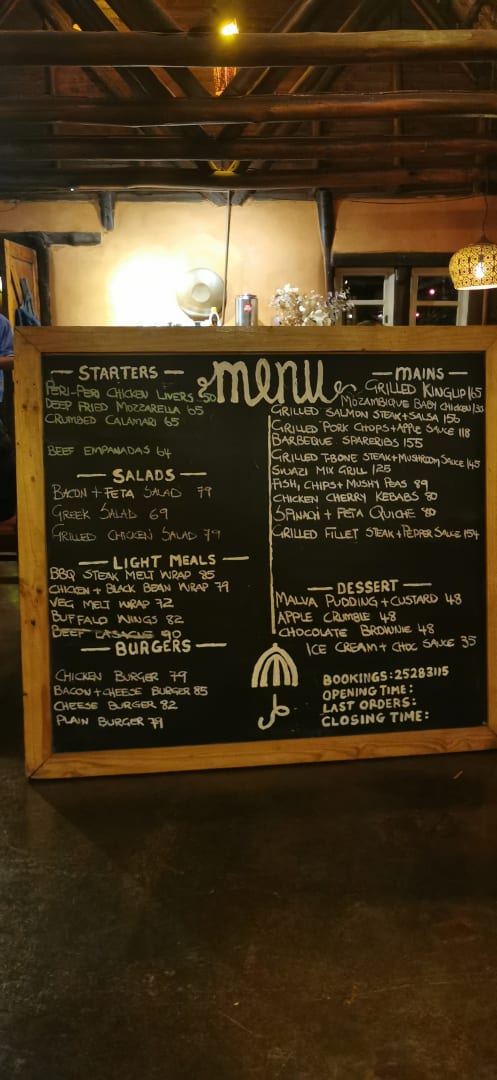 menu
STARTERS
PERI-PERI CHICKEN LIVERS 50
DEEP FRIED MOZZARELLA 65
CRUMBED CALAMARI 65
BEEF EMPANADAS 64
SALADS
BACON + FETA SALAD 79
GREEK SALAD 69
GRILLED CHICKEN SALAD 79
LIGHT MEALS
BBQ STEAK MELT WRAP 85
CHICKEN + BLACK BEAN WRAP 79
VEG MELT WRAP 72
BUFFALO WINGS 82
BEEF LASAGLE 90
BURGERS
CHICKEN BURGER 79
BACON + CHEESE BURGER 85
CHEESE BURGER 82
PLAIN BURGER 79
MAINS
GRILLED KINGLIP 165
MOZAMBIQUE BABY CHICKEN 135
GRILLED SALMON STEAK + SALSA 156
GRILLED PORK CHOPS + APPLE SAUCE 118
BARBEQUE SPARERIBS 155
GRILLED T-BONE STEAK + MUSHROOM SAUCE 145
SWAZI MIX GRILL 125
FISH, CHIPS + MUSHY PEAS 89
CHICKEN CHERRY KEBABS 80
SPINACH + FETA QUICHE 80
GRILLED FILLET STEAK + PEPPER SAUCE 154
DESSERT
MALVA PUDDING + CUSTARD 48
APPLE CRUMBLE 48
CHOCOLATE BROWNIE 48
ICE CREAM + CHOC SAUCE 35
BOOKINGS: 25283115
OPENING TIME:
LAST ORDERS:
CLOSING TIME: